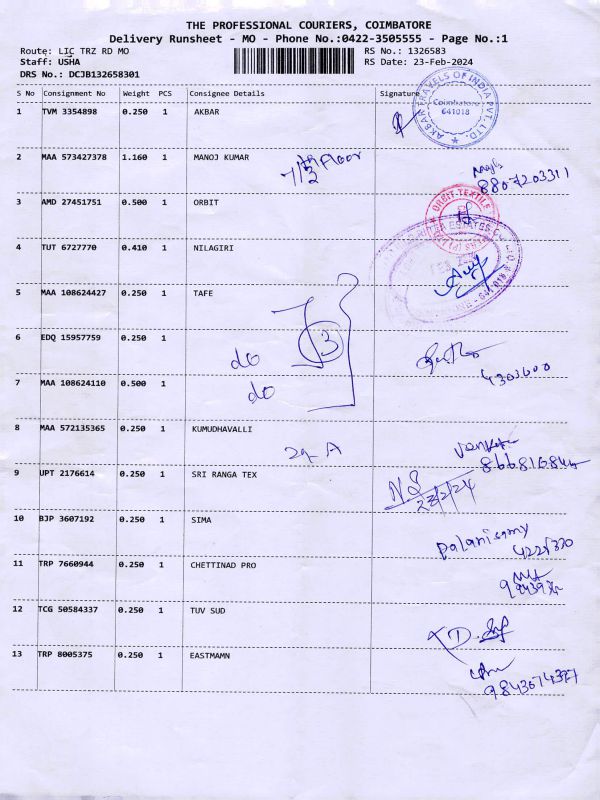 THE PROFESSIONAL COURIERS, COIMBATORE
Delivery Runsheet - MO - Phone No.:0422-3505555 - Page No.:1
Route: LIC TRZ RD MO
RS No.: 1326583
Staff: USHA
RS Date: 23-Feb-2024
DRS No.: DCJB132658301
S No Consignment No Weight PCS Consignee Details Signature
1 TVM 3354898 0.250 1 AKBAR
AKBAR TRAVELS OF INDIA PVT. LTD.
Coimbatore
641018
2 MAA 573427378 1.160 1 MANOJ KUMAR
Floor
8807203311
3 AMD 27451751 0.500 1 ORBIT
ORBIT-TEXTILE
4 TUT 6727770 0.410 1 NILAGIRI
ESTATES CO.
5 MAA 108624427 0.250 1 TAFE
3
6 EDQ 15957759 0.250 1
do
4303600
7 MAA 108624110 0.500 1
do
8 MAA 572135365 0.250 1 KUMUDHAVALLI
9 UPT 2176614 0.250 1 SRI RANGA TEX
NS
23/2/24
10 BJP 3607192 0.250 1 SIMA
Palanisamy
11 TRP 7660944 0.250 1 CHETTINAD PRO
12 TCG 50584337 0.250 1 TUV SUD
13 TRP 8005375 0.250 1 EASTMAMN